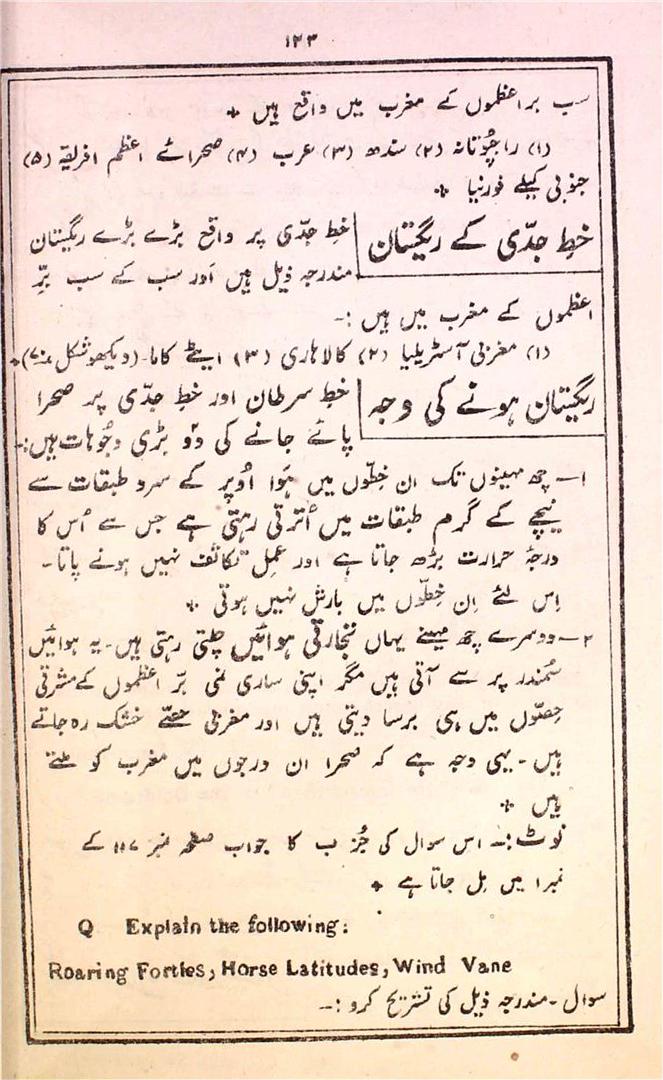 ۱۲۳
سب بر اعظموں کے مغرب میں واقع ہیں ٭
(۱) راجپُوتانہ (۲) سندھ (۳) عرب (۴) صحرائے اعظم افریقہ (۵)
جنوبی کیلے فورنیا ٭
خطِ جدّی کے ریگستان
خطِ جدّی پر واقع بڑے بڑے ریگستان
مندرجہ ذیل ہیں اَور سب کے سب برِّ
اعظموں کے مغرب میں ہیں :-
(۱) مغربی آسٹریلیا (۲) کالاہاری (۳) ایٹے کاما۔ (دیکھو شکل ۷۰)٭
ریگستان ہونے کی وجہ
خطِ سرطان اور خطِ جدّی پر صحرا
پائے جانے کی دَو بڑی وجُوہات ہیں:-
۱– چھ مہینوں تک ان خِطّوں میں ہَوا اُوپر کے سرو طبقات سے
نیچے کے گرم طبقات میں اُترتی رہتی ہے جس سے اُس کا
درجۂ حرارت بڑھ جاتا ہے اور عملِ تکاثف نہیں ہونے پاتا۔
اِس لئے اِن خِطّوں میں بارش نہیں ہوتی ٭
۲– دوسرے چھ مہینے یہاں تجارتی ہوائیں چلتی رہتی ہیں۔ یہ ہوائیں
سُمندر پر سے آتی ہیں مگر اپنی ساری نمی برِّ اعظموں کے مشرقی
حِصّوں میں ہی برسا دیتی ہیں اور مغربی حصّے خشک رہ جاتے
ہیں ۔ یہی وجہ ہے کہ صحرا ان درجوں میں مغرب کو ملتے
ہیں ٭
نوٹ :– اس سوال کی جُز ب کا جواب صفحہ نمبر ۱۱۷ کے
نمبر ۱ میں مِل جاتا ہے ٭
Q Explain the following:
Roaring Forties, Horse Latitudes, Wind Vane
سوال ۔ مندرجہ ذیل کی تشریح کرو :–